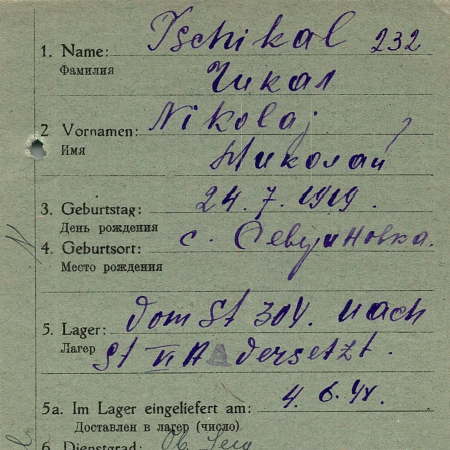 1. Name: Tschikal 232
Фамилия Чикал
2 Vornamen: Nikolaj
Имя Николай
3. Geburtstag: 24. 7. 1919.
День рождения
4. Geburtsort: с. Севериновка.
Место рождения
5. Lager: Vom St 304. nach
Лагер St VI A versetzt.
5a. Im Lager eingeliefert am: 4. 6. 42.
Доставлен в лагер (число)
6. Dienstgrad: